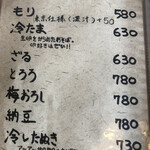 もり 580
東京仕様(濃汁)+50
冷たま 630
ざる 630
とろろ 780
梅おろし 780
納豆 780
冷したぬき 730